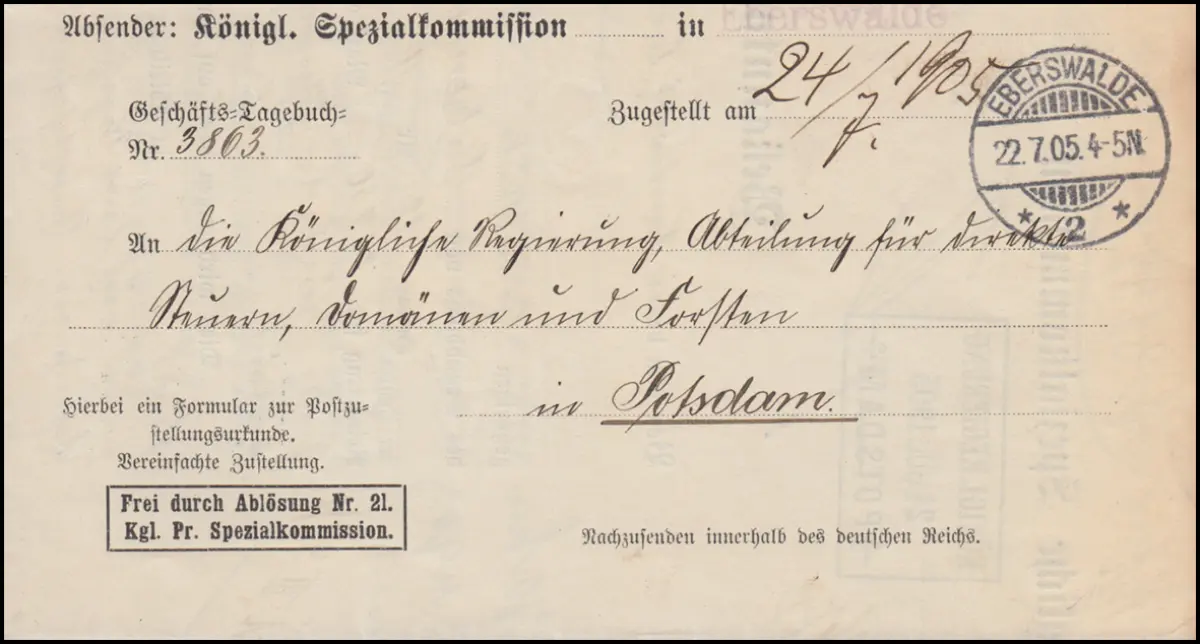 Absender: Königl. Spezialkommission in Eberswalde
Geschäfts-Tagebuch-
Nr. 3863.
Zugestellt am 24/7. 1905
EBERSWALDE
22.7.05.4-5N.
* 2 *
An die Königliche Regierung, Abteilung für direkte
Steuern, Domänen und Forsten
in Potsdam.
Hierbei ein Formular zur Postzu-
stellungsurkunde.
Vereinfachte Zustellung.
Frei durch Ablösung Nr. 21.
Kgl. Pr. Spezialkommission.
Nachzusenden innerhalb des deutschen Reichs.